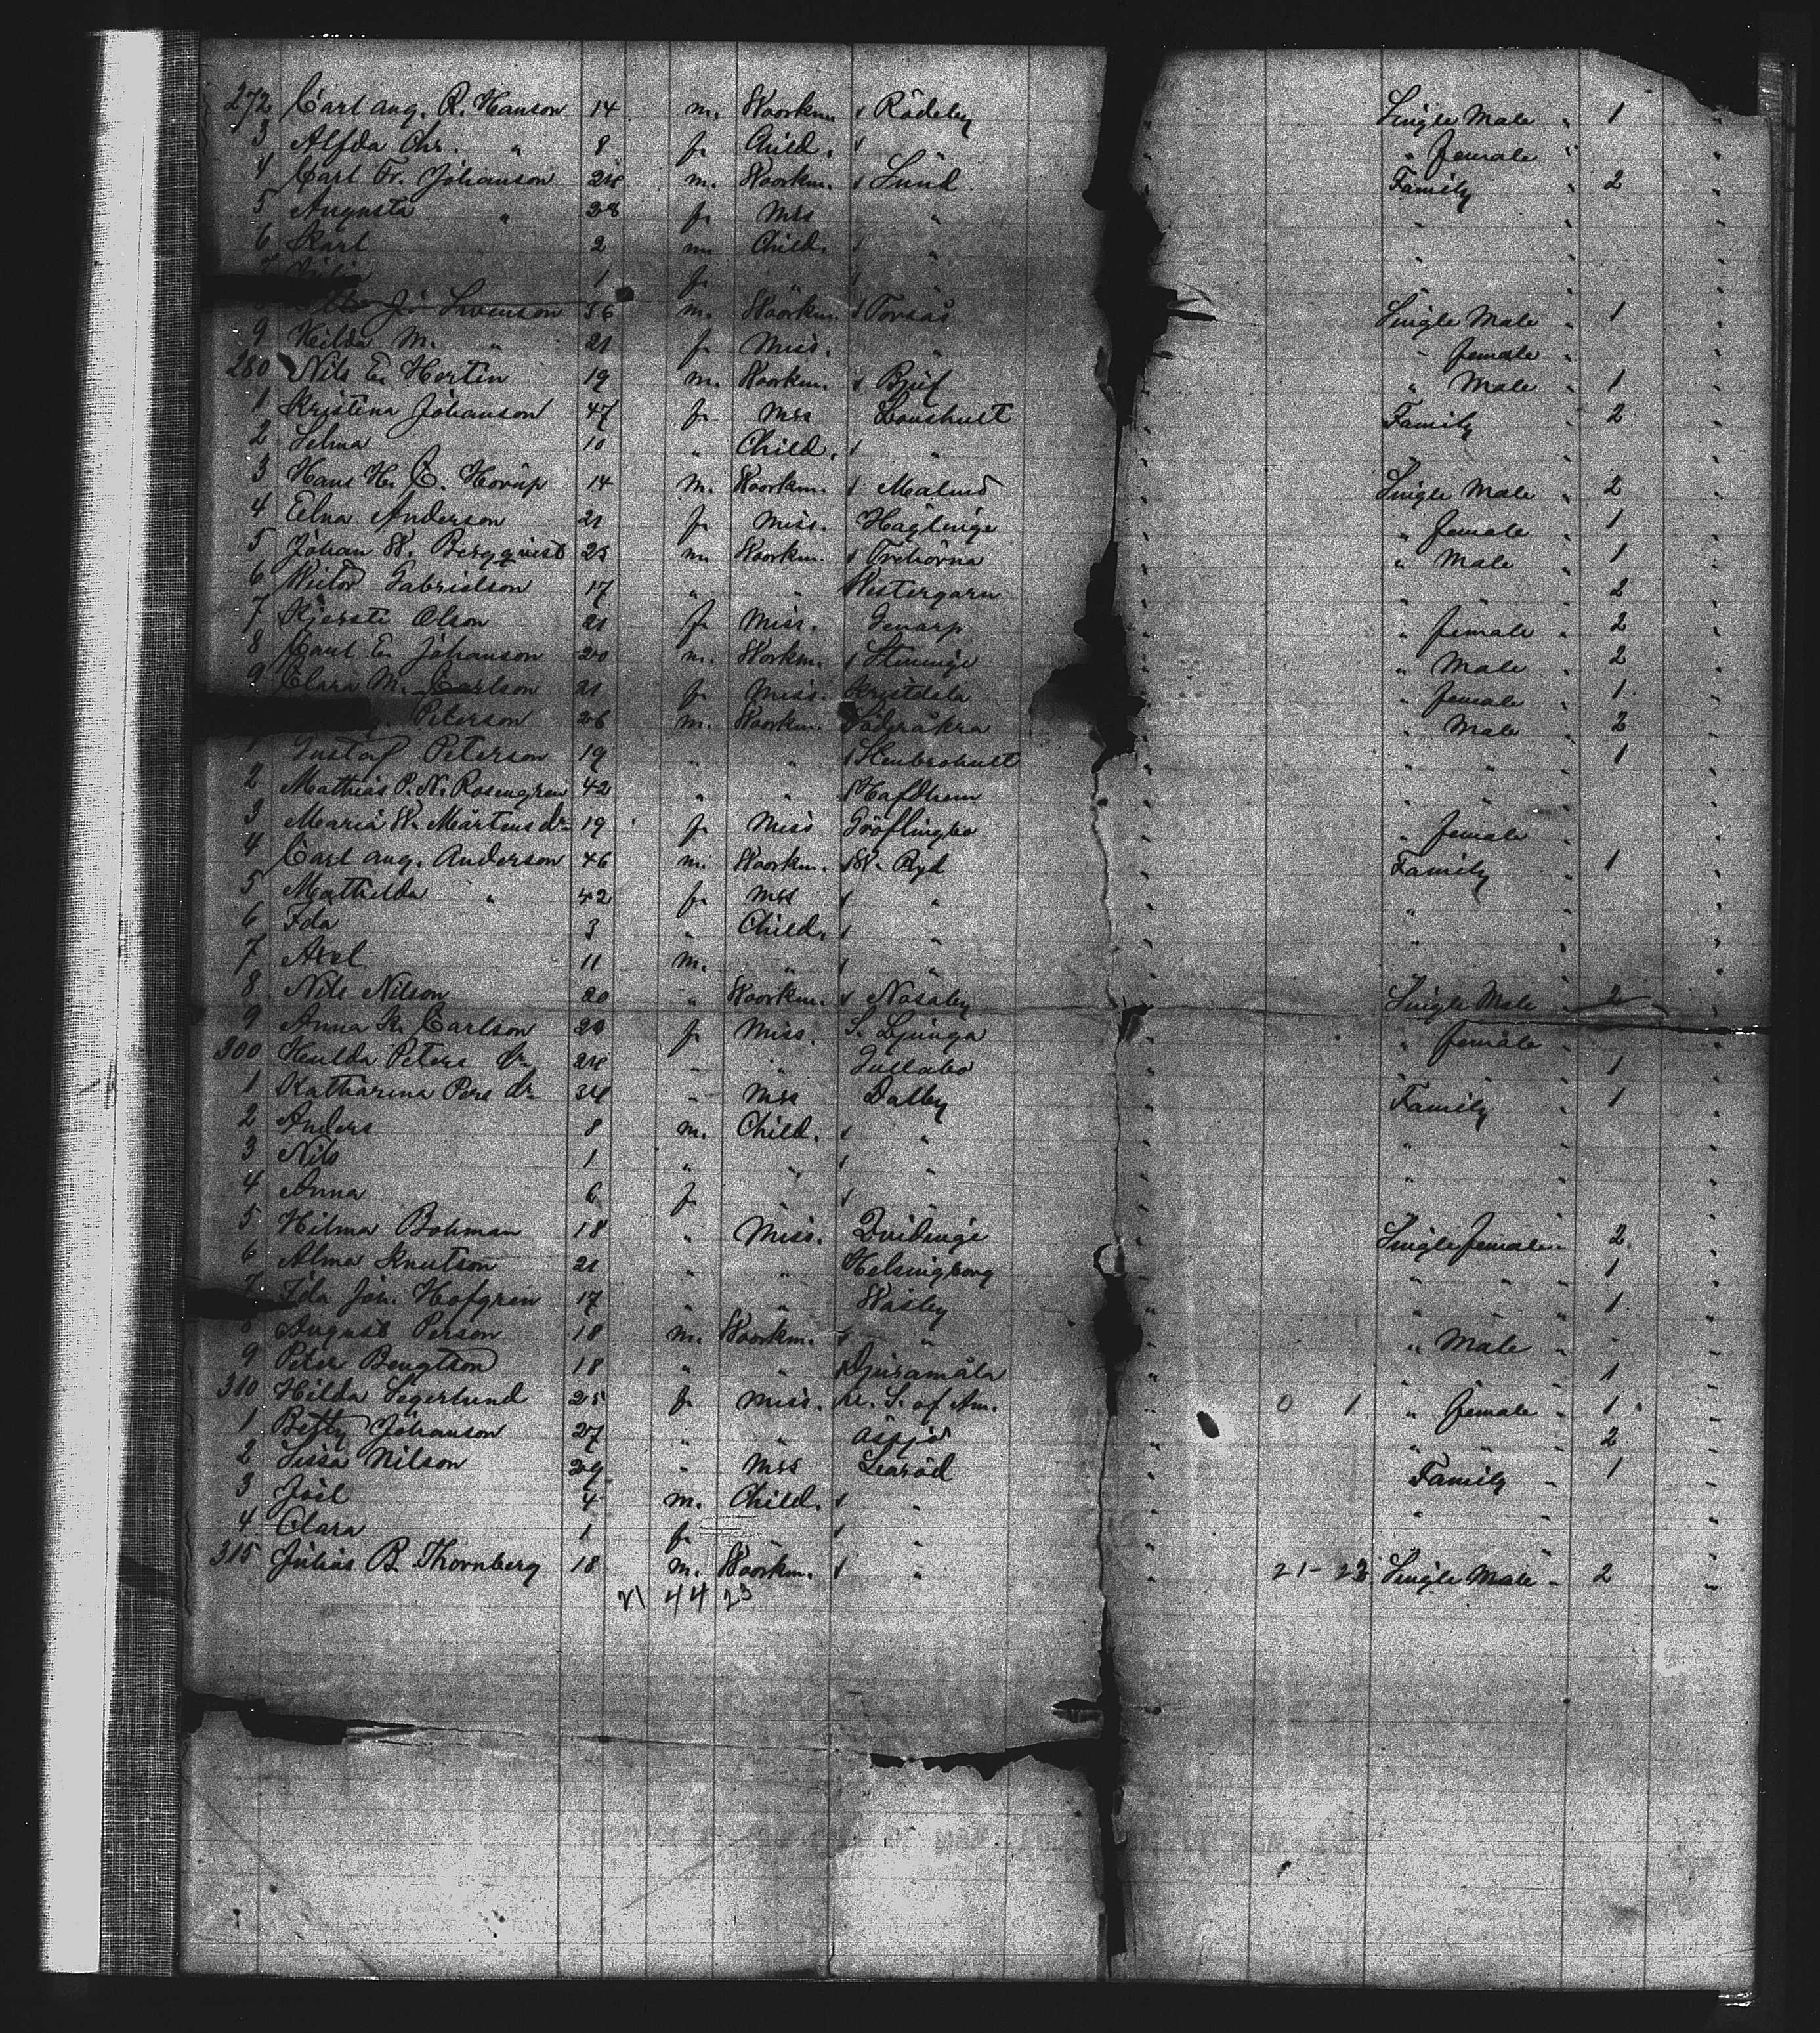 272 Carl aug. R. Hanson 14 m. Woorkm. Rödeby " Single Male " 1 "
3 Alfda Chr. " 8 f. Child. " female " "
4 Carl Fr. Johanson 28 m. Woorkm. Lund " Family " 2 "
5 Augusta " 28 f. Mrs " " " " "
6 Karl 2 m. Child. " " " " "
1 f. " " " "
J. Swenson 56 m. Woorkm. Torsås Single Male " 1 "
9 Hilda M. " 21 f. Miss. " " " female " "
280 Nils E. Hortin 19 m. Woorkm. Bjuf " " Male " 1 "
1 Kristina Johanson 47 f. Mrs Loushult " Family " 2 "
2 Selma 10 " Child. " " "
3 Hans H. C. Horup 14 m. Woorkm. Malmö " Single Male " 2 "
4 Elna Anderson 21 f. Miss. Häglinge " " female " 1 "
5 Johan W. Bergqvist 25 m. Woorkm. Trehörna " " Male " 1 "
6 Gabrielson 17 " " Westergarn " " " " 2 "
7 Kjersti Olson 21 f. Miss. Genarp " " female " 2 "
8 Carl E. Johanson 20 m. Workm. Steninge " " Male " 2 "
9 Clara M. Carlson 21 f. Miss. Kristdala " " female " 1 "
Peterson 26 m. Woorkm. Söderåkra " " Male " 2 "
1 Gustaf Peterson 19 " " Stenbrohult " " " " 1 "
2 Mathias P. N. Rosengren 42 " " Hafdhem " " " " "
3 Maria W. Mårtens dr 19 f. Miss Gröflingbo " " female " "
4 Carl aug. Anderson 46 m. Woorkm. W. Ryd " Family " 1 "
5 Mathilda " 42 f. Mrs " " " " "
6 Ida 3 " Child. " " " " "
7 Axel 11 m. " " " " "
8 Nils Nilson 20 " Woorkm. Näsaby " Single Male " 2 "
9 Anna K. Carlson 20 f. Miss. S. Ljunga " " female " "
300 Hulda Peters dr 24 " " Gullabo " " " " 1 "
1 Katharina Pers dr 34 " Mrs Dalby " Family " 1 "
2 Anders 8 m. Child. " " " " "
3 Nils 1 " " " " " " "
4 Anna 6 f. " " " " " "
5 Hilma Bohman 18 " Miss. Qvidinge " Single female " 2 "
6 Alma Knutson 21 " " Helsingborg " " " " 1 "
7 Ida Joh. Hofgren 17 " " Wäsby " " " " 1 "
8 August Person 18 m. Woorkm. " " Male " " "
9 Peter Bengtson 18 " " Djuramåla " " " " 1 "
310 Hilda Segerlund 25 f. Miss. U. S. of Am. " 0 1 " female " 1 "
1 Betty Johanson 27 " " " " " " 2 "
2 Sissa Nilson 29 " Mrs " Family " 1 "
3 Joel 4 m. Child. " " " " "
4 Clara 1 f. " " " "
315 Julius B. Thornberg 18 m. Woorkm. " " 21 - 23 Single Male " 2 "
21 44 23